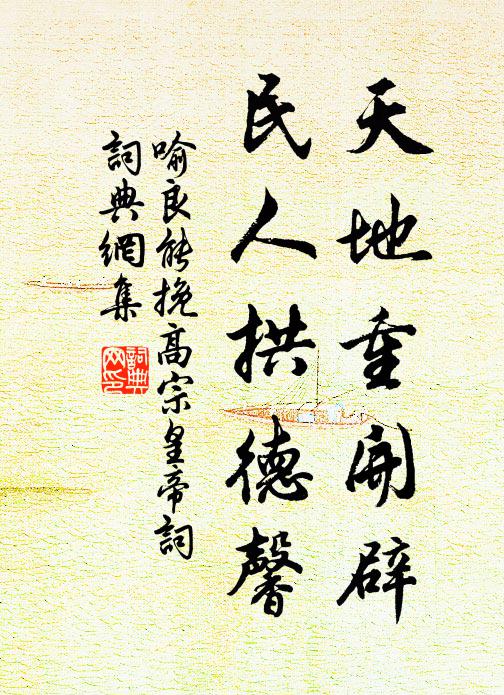 天地重開辟
民人拱德馨
喻良能挽高宗皇帝詞
詞典網集
詞典網印